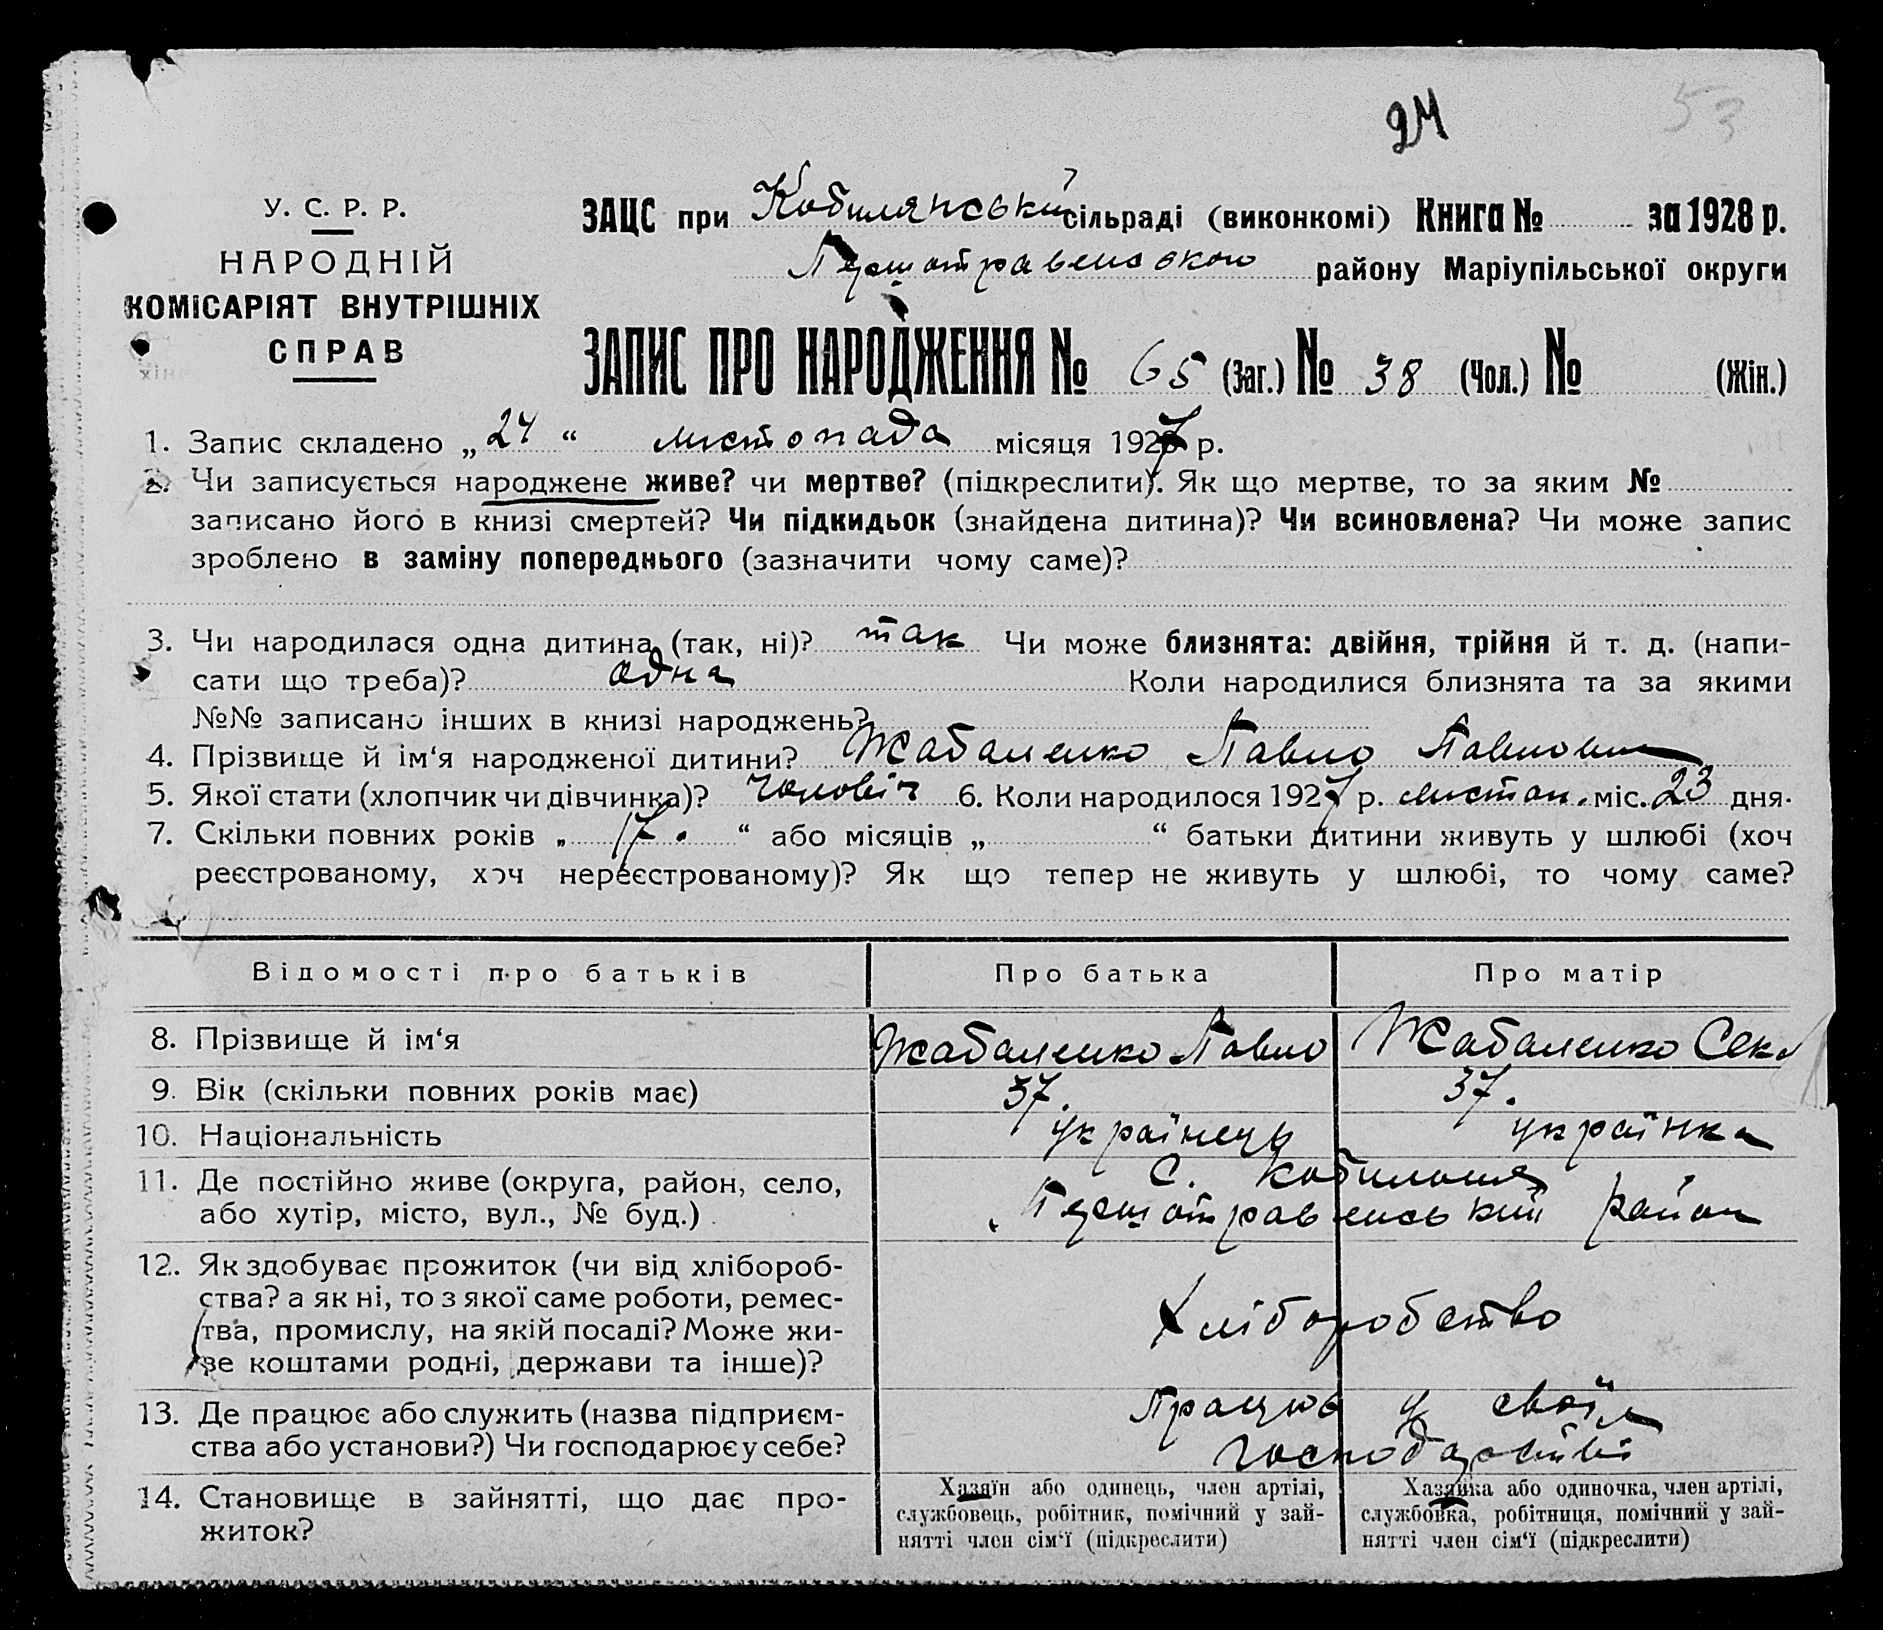 24 53
У. С. Р. Р.
НАРОДНІЙ
КОМІСАРІЯТ ВНУТРІШНІХ
СПРАВ
ЗАЦС при Кобилянській сільраді (виконкомі) Книга № за 1928 р.
Першотравенського району Маріупільської округи
ЗАПИС ПРО НАРОДЖЕННЯ № 65 (Заг.) № 38 (Чол.) № (Жін.)
1. Запис складено „ 24 “ листопада місяця 1927 р.
2. Чи записується народжене живе? чи мертве? (підкреслити). Як що мертве, то за яким №
записано його в книзі смертей? Чи підкидьок (знайдена дитина)? Чи всиновлена? Чи може запис
зроблено в заміну попереднього (зазначити чому саме)?
3. Чи народилася одна дитина (так, ні)? так Чи може близнята: двійня, трійня й т. д. (напи-
сати що треба)? одна Коли народилися близнята та за якими
№№ записано інших в книзі народжень?
4. Прізвище й ім‘я народженої дитини? Жабаленко Павло Павлович
5. Якої стати (хлопчик чи дівчинка)? чоловіч 6. Коли народилося 1927 р. листоп. міс. 23 дня.
7. Скільки повних років „ 17. “ або місяців „ “ батьки дитини живуть у шлюбі (хоч
реєстрованому, хоч нереєстрованому)? Як що тепер не живуть у шлюбі, то чому саме?
Відомості про батьків Про батька Про матір
8. Прізвище й ім‘я Жабаленко Павло Жабаленко Секл
9. Вік (скільки повних років має) 37. 37.
10. Національність українець українка
11. Де постійно живе (округа, район, село, с. Кобильня
або хутір, місто, вул., № буд.) Першотравенський район
12. Як здобуває прожиток (чи від хлібороб-
ства? а як ні, то з якої саме роботи, ремес-
тва, промислу, на якій посаді? Може жи- Хліборобство
ве коштами родні, держави та інше)?
13. Де працює або служить (назва підприєм- Працює у своїм
ства або установи?) Чи господарює у себе? господарстві
14. Становище в зайнятті, що дає про-
житок?
Хазяїн або одинець, член артілі,
службовець, робітник, помічний у зай-
нятті член сім‘ї (підкреслити)
Хазяйка або одиночка, член артілі,
службовка, робітниця, помічний у зай-
нятті член сім‘ї (підкреслити)